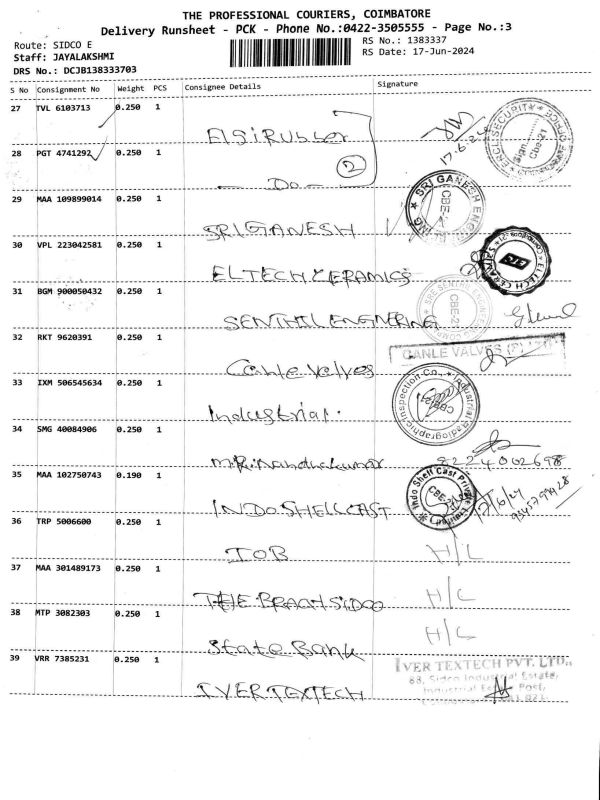 THE PROFESSIONAL COURIERS, COIMBATORE
Delivery Runsheet - PCK - Phone No.:0422-3505555 - Page No.:3
Route: SIDCO E
RS No.: 1383337
Staff: JAYALAKSHMI
RS Date: 17-Jun-2024
DRS No.: DCJB138333703
S No Consignment No Weight PCS Consignee Details Signature
27 TVL 6103713 0.250 1
Elgi Rubber
17.6.24
28 PGT 4741292 0.250 1
2
- Do -
29 MAA 109899014 0.250 1
SRI GANESH
SRI GANECH
CBE-21
30 VPL 223042581 0.250 1
ELTECH CERAMICS
ELTECH CERAMICS
ETS
31 BGM 900050432 0.250 1
SENTHIL ENGNERING
CBE-21
32 RKT 9620391 0.250 1
Canle Valves
CANLE VALVES (P)
33 IXM 506545634 0.250 1
Industrial.
Industrial Radiographic Inspection Co.,
CBE-21
34 SMG 40084906 0.250 1
35 MAA 102750743 0.190 1
INDO SHELL CAST
Indo Shell Cast Private Limited
CBE-21
36 TRP 5006600 0.250 1
IOB
H/L
37 MAA 301489173 0.250 1
THE BRACH SIDCO
H/L
38 MTP 3082303 0.250 1
State Bank
H/L
39 VRR 7385231 0.250 1
IVER TEXTECH
IVER TEXTECH PVT. LTD.,
88, Sidco Industrial Estate,
Industrial Estate Post,